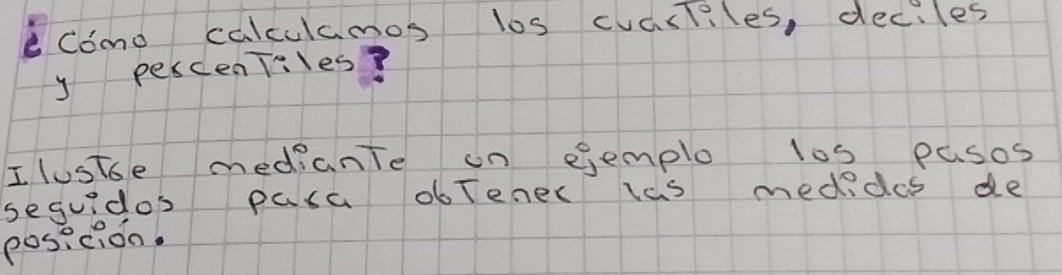 ¿cómo calculamos los cuartiles, deciles
y percentiles?
Ilustre mediante un ejemplo los pasos
seguidos para obtener las medidas de
posición.